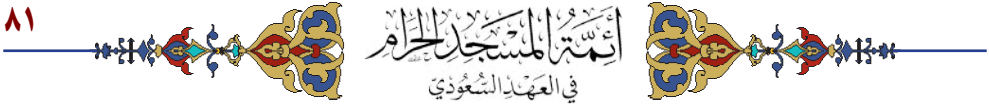 ٨١
أَئِمَّةُ المَسْجِدِ الحَرَامِ
في العَهْدِ السُّعُودِيّ